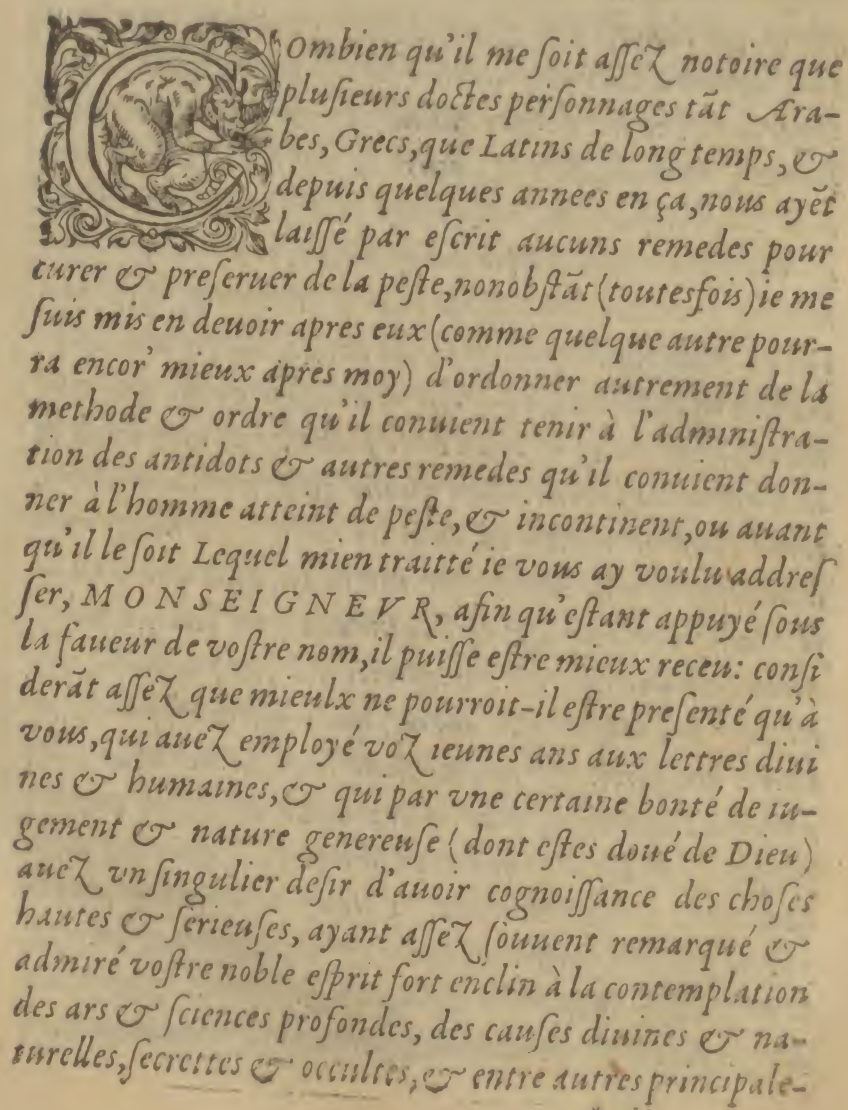 Combien qu'il me ſoit aſſeZ notoire que
pluſieurs doctes perſonnages tãt Ara-
bes, Grecs, que Latins de long temps, &
depuis quelques annees en ça, nous ayẽt
laiſſé par eſcrit aucuns remedes pour
curer & preſeruer de la peſte, nonobſtãt (toutesfois) ie me
ſuis mis en deuoir apres eux (comme quelque autre pour-
ra encor' mieux apres moy) d'ordonner autrement de la
methode & ordre qu'il conuient tenir à l'adminiſtra-
tion des antidots & autres remedes qu'il conuient don-
ner à l'homme atteint de peſte, & incontinent, ou auant
qu'il le ſoit Lequel mien traitté ie vous ay voulu addreſ
ſer, MONSEIGNEVR, afin qu'eſtant appuyé ſous
la faueur de voſtre nom, il puiſſe eſtre mieux receu: conſi
derãt aſſeZ que mieulx ne pourroit-il eſtre preſenté qu'à
vous, qui aueZ employé voZ ieunes ans aux lettres diui
nes & humaines, & qui par vne certaine bonté de iu-
gement & nature genereuſe (dont eſtes doué de Dieu)
aueZ vn ſingulier deſir d'auoir cognoiſſance des choſes
hautes & ſerieuſes, ayant aſſeZ ſouuent remarqué &
admiré voſtre noble eſprit fort enclin à la contemplation
des ars & ſciences profondes, des cauſes diuines & na-
turelles, ſecrettes & occultes, & entre autres principale-